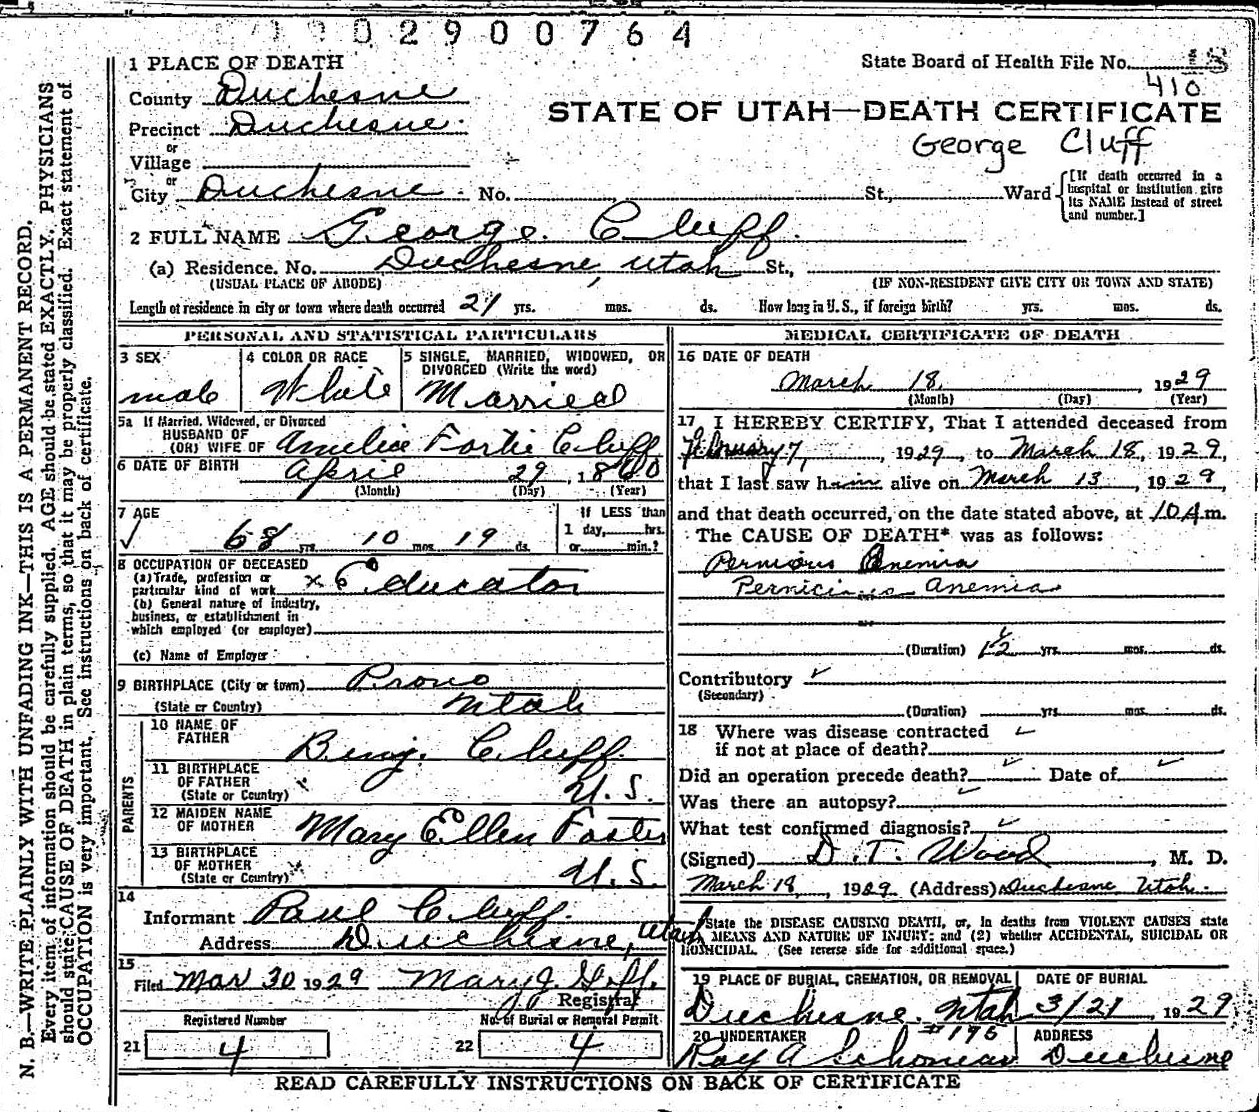 19029 00764
1 PLACE OF DEATH
State Board of Health File No. 18
410
County Duchesne
STATE OF UTAH—DEATH CERTIFICATE
Precinct Duchesne
George Cluff
or
Village
or
City Duchesne. No. St., Ward
[If death occurred in a hospital or institution give its NAME instead of street and number.]
2 FULL NAME George Cluff.
(a) Residence. No. Duchesne, Utah St.,
(USUAL PLACE OF ABODE) (IF NON-RESIDENT GIVE CITY OR TOWN AND STATE)
Length of residence in city or town where death occurred 21 yrs. mos. ds. How long in U. S., if foreign birth? yrs. mos. ds.
PERSONAL AND STATISTICAL PARTICULARS
3 SEX
male
4 COLOR OR RACE
White
5 SINGLE, MARRIED, WIDOWED, OR
DIVORCED (Write the word)
Married
5a If Married, Widowed, or Divorced
HUSBAND OF
(OR) WIFE OF Amelia Fortie Cluff
6 DATE OF BIRTH April 29, 1860
(Month) (Day) (Year)
7 AGE
68 yrs. 10 mos. 19 ds.
If LESS than
1 day, hrs.
or min.?
8 OCCUPATION OF DECEASED
(a) Trade, profession or
particular kind of work x Educator
(b) General nature of industry,
business, or establishment in
which employed (or employer)
(c) Name of Employer
9 BIRTHPLACE (City or town) Provo
(State or Country) Utah
PARENTS
10 NAME OF
FATHER Benj. Cluff.
11 BIRTHPLACE
OF FATHER
(State or Country) U. S.
12 MAIDEN NAME
OF MOTHER Mary Ellen Foster
13 BIRTHPLACE
OF MOTHER
(State or Country) U. S.
14
Informant Paul Cluff.
Address Duchesne, Utah
15
Filed Mar 30 1929 Mary J. Goff.
Registrar
Registered Number No. of Burial or Removal Permit
21 4 22 4
MEDICAL CERTIFICATE OF DEATH
16 DATE OF DEATH
March 18, 1929
(Month) (Day) (Year)
17 I HEREBY CERTIFY, That I attended deceased from
February 7, 1929, to March 18, 1929,
that I last saw him alive on March 13, 1929
and that death occurred, on the date stated above, at 10 A m.
The CAUSE OF DEATH* was as follows:
Pernious Anemia
Pernicious anemia
(Duration) yrs. mos. ds.
Contributory
(Secondary)
(Duration) yrs. mos. ds.
18 Where was disease contracted
if not at place of death?
Did an operation precede death? Date of
Was there an autopsy?
What test confirmed diagnosis?
(Signed) D. T. Wood, M. D.
March 18, 1929 (Address) Duchesne Utah.
State the DISEASE CAUSING DEATH, or, in deaths from VIOLENT CAUSES state
MEANS AND NATURE OF INJURY: and (2) whether ACCIDENTAL, SUICIDAL OR
HOMICIDAL. (See reverse side for additional space.)
19 PLACE OF BURIAL, CREMATION, OR REMOVAL DATE OF BURIAL
Duchesne. Utah 3/21, 1929
20 UNDERTAKER #196 ADDRESS
Roy A Schonian Duchesne
READ CAREFULLY INSTRUCTIONS ON BACK OF CERTIFICATE
N. B.—WRITE PLAINLY WITH UNFADING INK—THIS IS A PERMANENT RECORD.
Every item of information should be carefully supplied. AGE should be stated EXACTLY. PHYSICIANS
should state CAUSE OF DEATH in plain terms, so that it may be properly classified. Exact statement of
OCCUPATION is very important. See instructions on back of certificate.